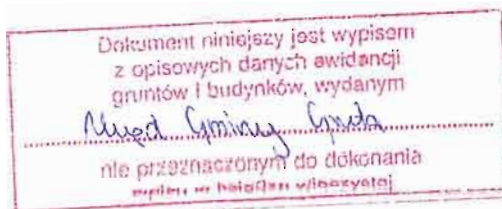 Dokument niniejszy jest wypisem
z opisowych danych ewidencji
gruntów i budynków, wydanym
Urząd Gminy
nie przeznaczonym do dokonania
wpisu w księdze wieczystej